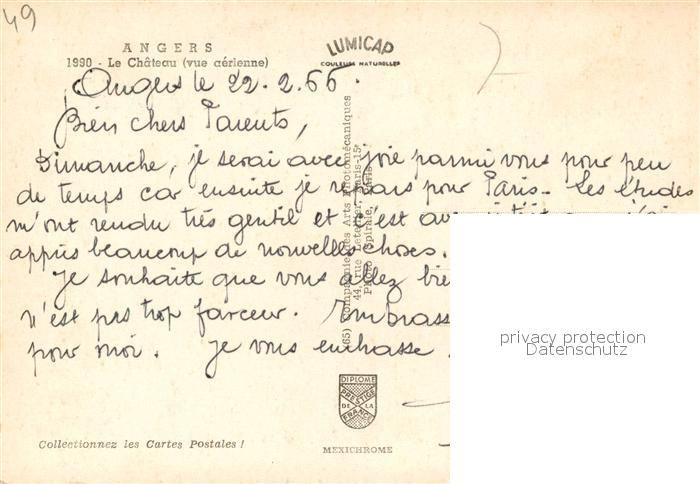 49
ANGERS
1990 - Le Château (vue aérienne)
LUMICAP
COULEURS NATURELLES
Angers le 22.2.66.
Bien chers Parents,
Dimanche, je serai avec joie parmi vous pour peu
de temps car ensuite je repars pour Paris. Les études
m'ont rendu très gentil et c'est avec
appris beaucoup de nouvelles choses.
Je souhaite que vous allez
n'est pas trop farceur.
pour moi. Je vous embrasse.
(65) Compagnie des Arts Photomécaniques
44, rue Letellier, Paris-15e
Photo Spirale, Paris
DIPLOME
PRESTIGE
DE LA
FRANCE
MEXICHROME
Collectionnez les Cartes Postales !
privacy protection
Datenschutz